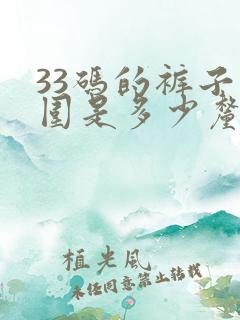 33码的裤子
围是多少厘
植光风
未经同意禁止转载